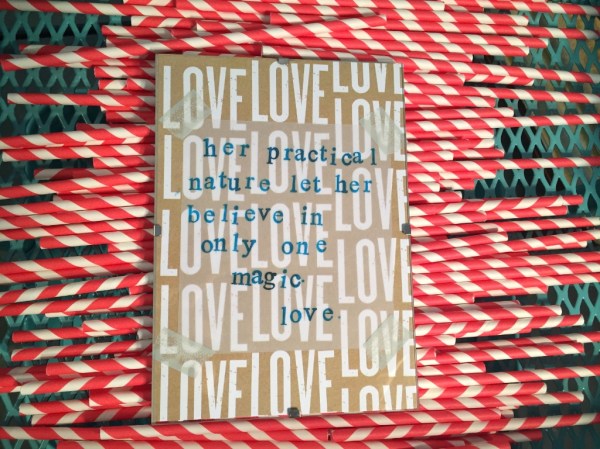 LOVE LOVE LOVE
LOVE
her practical
nature let her
believe in
only one
magic.
love.
LOVE LOVE LOVE
LOVE LOVE LOVE
LOVE LOVE LOVE
LOVE LOVE LOVE
LOVE LOVE LOVE
LOVE